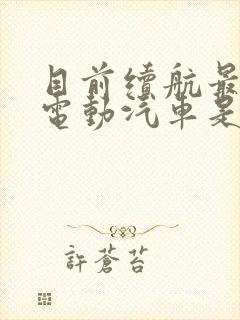 目前續航最
電動汽車是
許蒼苔